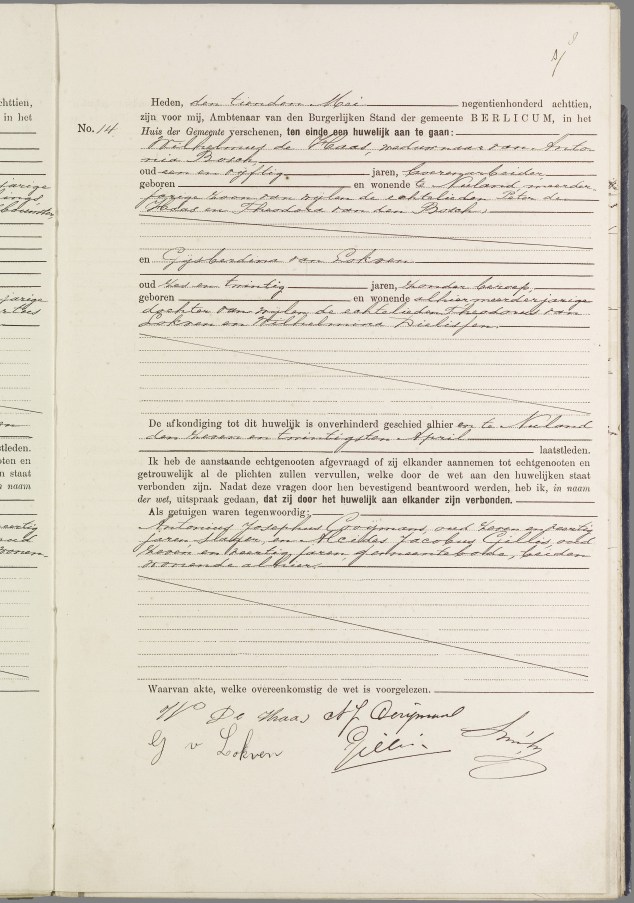 Heden, den tienden Mei negentienhonderd achttien,
zijn voor mij, Ambtenaar van den Burgerlijken Stand der gemeente BERLICUM, in het
No. 14. Huis der Gemeente verschenen, ten einde een huwelijk aan te gaan:
Wilhelmus de Haas, weduwnaar van Anto-
nia Bosch,
oud een en vijftig jaren, boerenarbeider
geboren en wonende te Nuland, meerder-
jarige zoon van wijlen de echtelieden Peter de
Haas en Theodora van den Bosch;
en Gijsberdina van Lokven
oud zes en twintig jaren, zonder beroep,
geboren en wonende alhier meerderjarige
dochter van wijlen de echtelieden Theodorus van
Lokven en Wilhelmina Dielissen.
De afkondiging tot dit huwelijk is onverhinderd geschied alhier en te Nuland
den zeven en twintigsten April laatstleden.
Ik heb de aanstaande echtgenooten afgevraagd of zij elkander aannemen tot echtgenooten en
getrouwelijk al de plichten zullen vervullen, welke door de wet aan den huwelijken staat
verbonden zijn. Nadat deze vragen door hen bevestigend beantwoord werden, heb ik, in naam
der wet, uitspraak gedaan, dat zij door het huwelijk aan elkander zijn verbonden.
Als getuigen waren tegenwoordig:
Antonius Josephus Cooijmans, oud zeven en veertig
jaren, slager, en Alcides Jacobus Gillis, oud
zeven en veertig jaren, gemeentebode, beiden
wonende alhier.
Waarvan akte, welke overeenkomstig de wet is voorgelezen.
W De Haas
G v Lokven
Gillis
chttien,
in het
jarige
jarige
tleden.
oten en
n staat
n naam